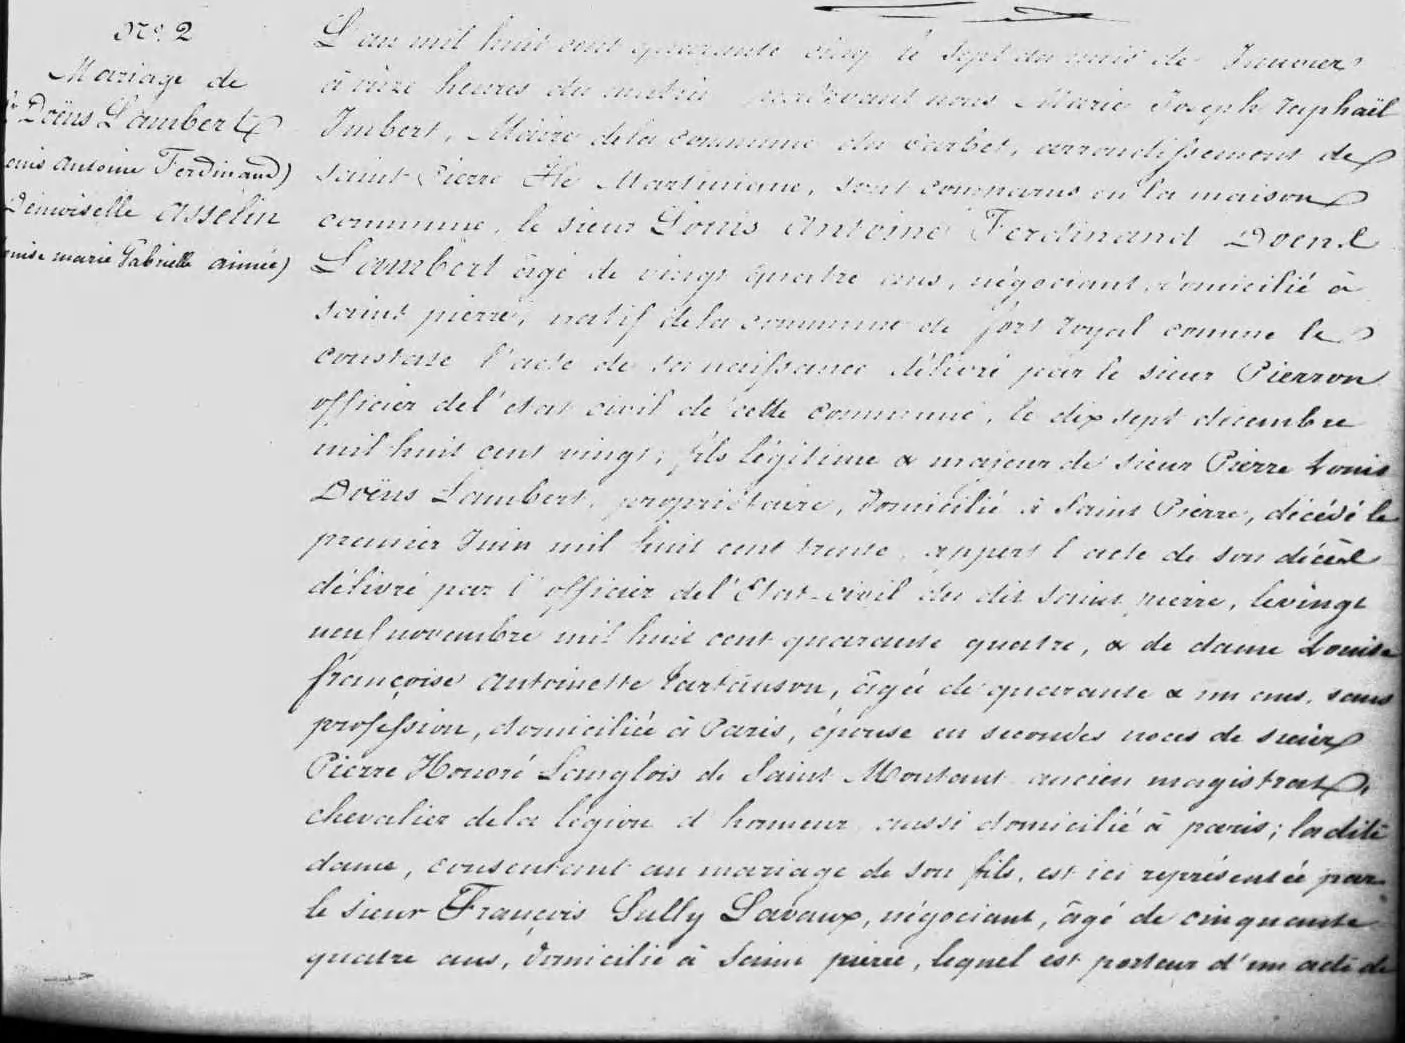 N.º 2
Mariage de
Sr Doëns Lambert
Louis Antoine Ferdinand)
Demoiselle Asselin
Louise marie Gabrielle aimée)
L'an mil huit cent quarante cinq le sept du mois de Janvier
à onze heures du matin pardevant nous Marie Joseph raphaël
Imbert, Maire de la commune du Carbet, arrondissement de
saint Pierre Ile Martinique, sont comparus en la maison
commune, le sieur Louis Antoine Ferdinand Doens
Lambert âgé de vingt quatre ans, négociant, domicilié à
saint pierre, natif de la commune de fort royal comme le
constate l'acte de sa naissance délivré par le sieur Pierron
officier de l'etat civil de cette commune, le dix sept décembre
mil huit cent vingt, fils légitime & majeur de sieur Pierre Louis
Doëns Lambert, propriétaire, domicilié à Saint Pierre, décédé le
premier Juin mil huit cent trente, appert l'acte de son décès
délivré par l'officier de l'Etat-civil du dit saint pierre, le vingt
neuf novembre mil huit cent quarante quatre, & de dame Louise
françoise Antoinette Tartanson, âgée de quarante & un ans, sans
profession, domiciliée à Paris, épouse en secondes noces de sieur
Pierre Honoré Langlois de Saint Montant ancien magistrat,
chevalier de la légion d'honneur aussi domicilié à paris; la dite
dame, consentant au mariage de son fils, est ici représentée par
le sieur François Sully Lavaux, négociant, âgé de cinquante
quatre ans, domicilié à Saint pierre, lequel est porteur d'un acte de